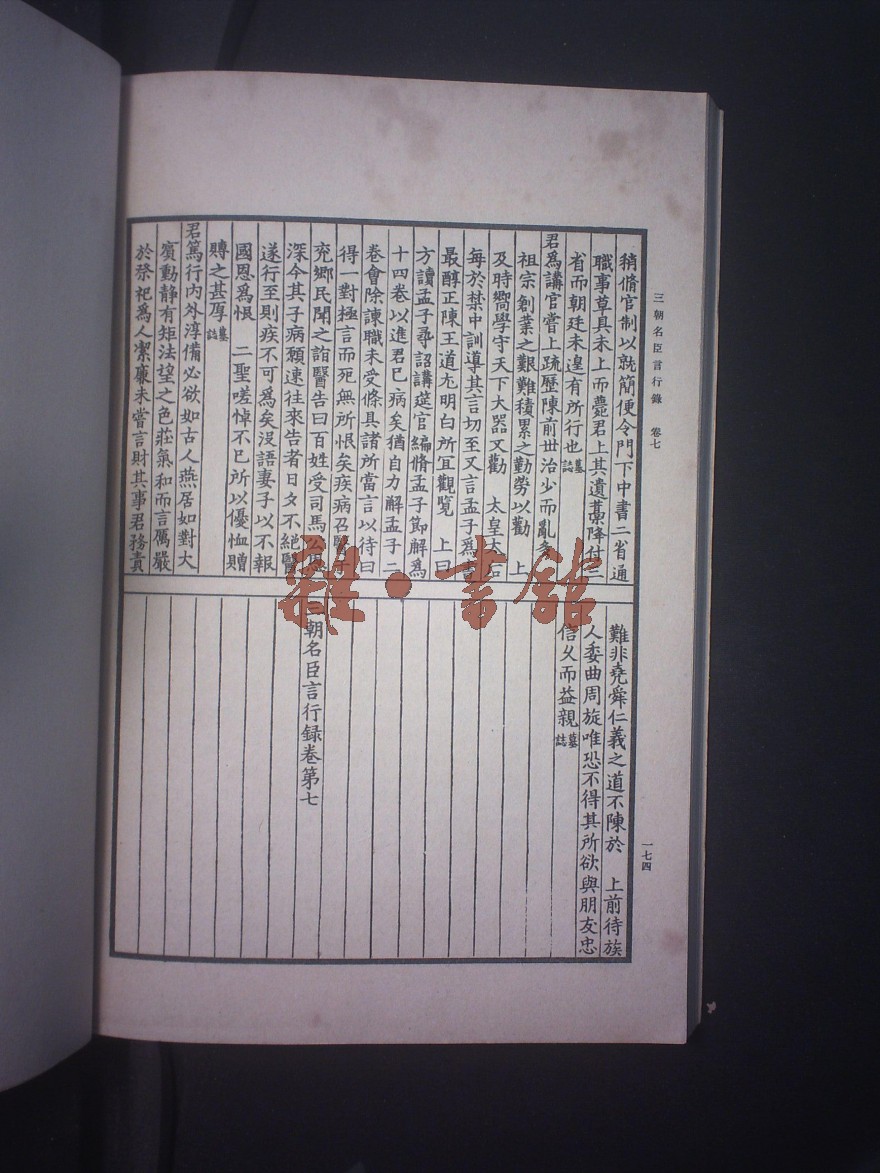 三朝名臣言行録 卷七
稍脩官制以就簡便令門下中書二省通
職事草具未上而薨君上其遺藁降付三
省而朝廷未遑有所行也墓誌
君為講官嘗上疏歷陳前世治少而亂多
祖宗創業之艱難積累之勤勞以勸 上
及時嚮學守天下大器又勸 太皇太后
每於禁中訓導其言切至又言孟子為書
最醇正陳王道尤明白所宜觀覽 上曰
方讀孟子尋詔講筵官編脩孟子節解為
十四卷以進君已病矣猶自力解孟子二
卷會除諫職未受條具諸所當言以待曰
得一對極言而死無所恨矣疾病召醫于
兖鄉民聞之詣醫告曰百姓受司馬公恩
深今其子病願速往來告者日夕不絕醫
遂行至則疾不可為矣沒語妻子以不報
國恩為恨 二聖嗟悼不已所以優恤贈
賻之甚厚墓誌
君篤行內外淳備必欲如古人燕居如對大
賓動靜有矩法望之色莊氣和而言厲嚴
於祭祀為人潔廉未嘗言財其事君務責
難非堯舜仁義之道不陳於 上前待族
人委曲周旋唯恐不得其所欲與朋友忠
信久而益親墓誌
三朝名臣言行録卷第七
一七四
雜·書館